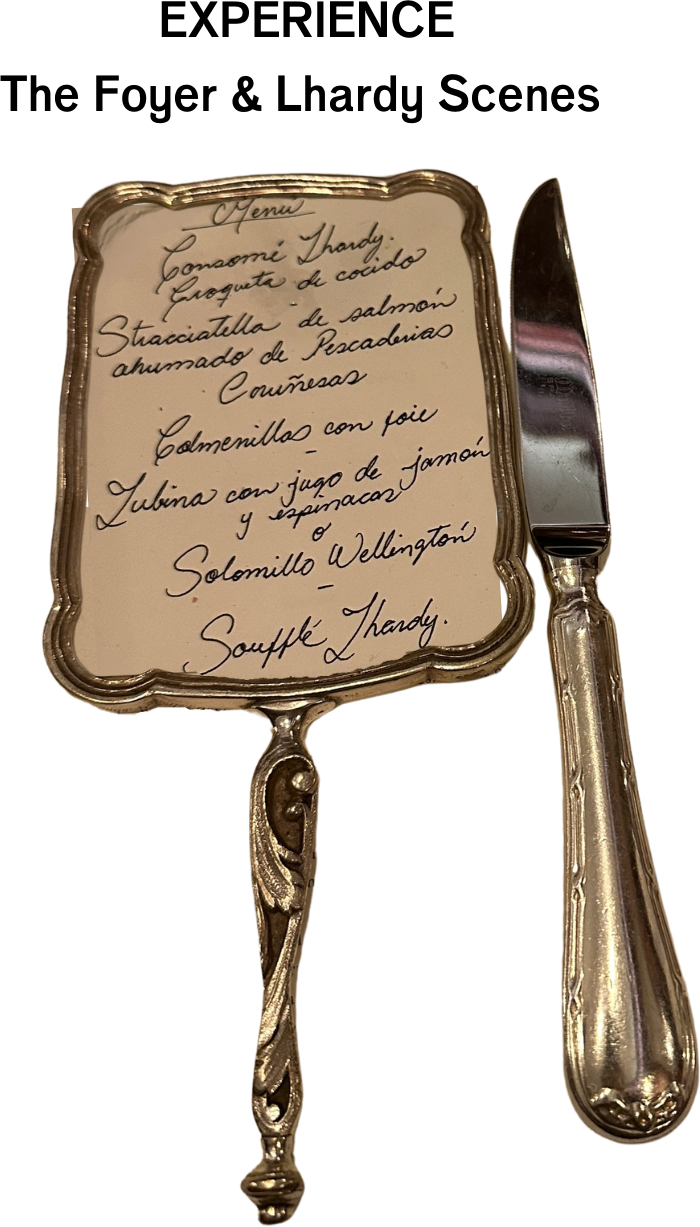 EXPERIENCE
The Foyer & Lhardy Scenes
Menu
Consomé Lhardy.
Croqueta de cocido
-
Stracciatella de salmón
ahumado de Pescaderias
Coruñesas
-
Colmenillas con foie
-
Lubina con jugo de jamón
y espinacas
o
Solomillo Wellington
-
Soufflé Lhardy.